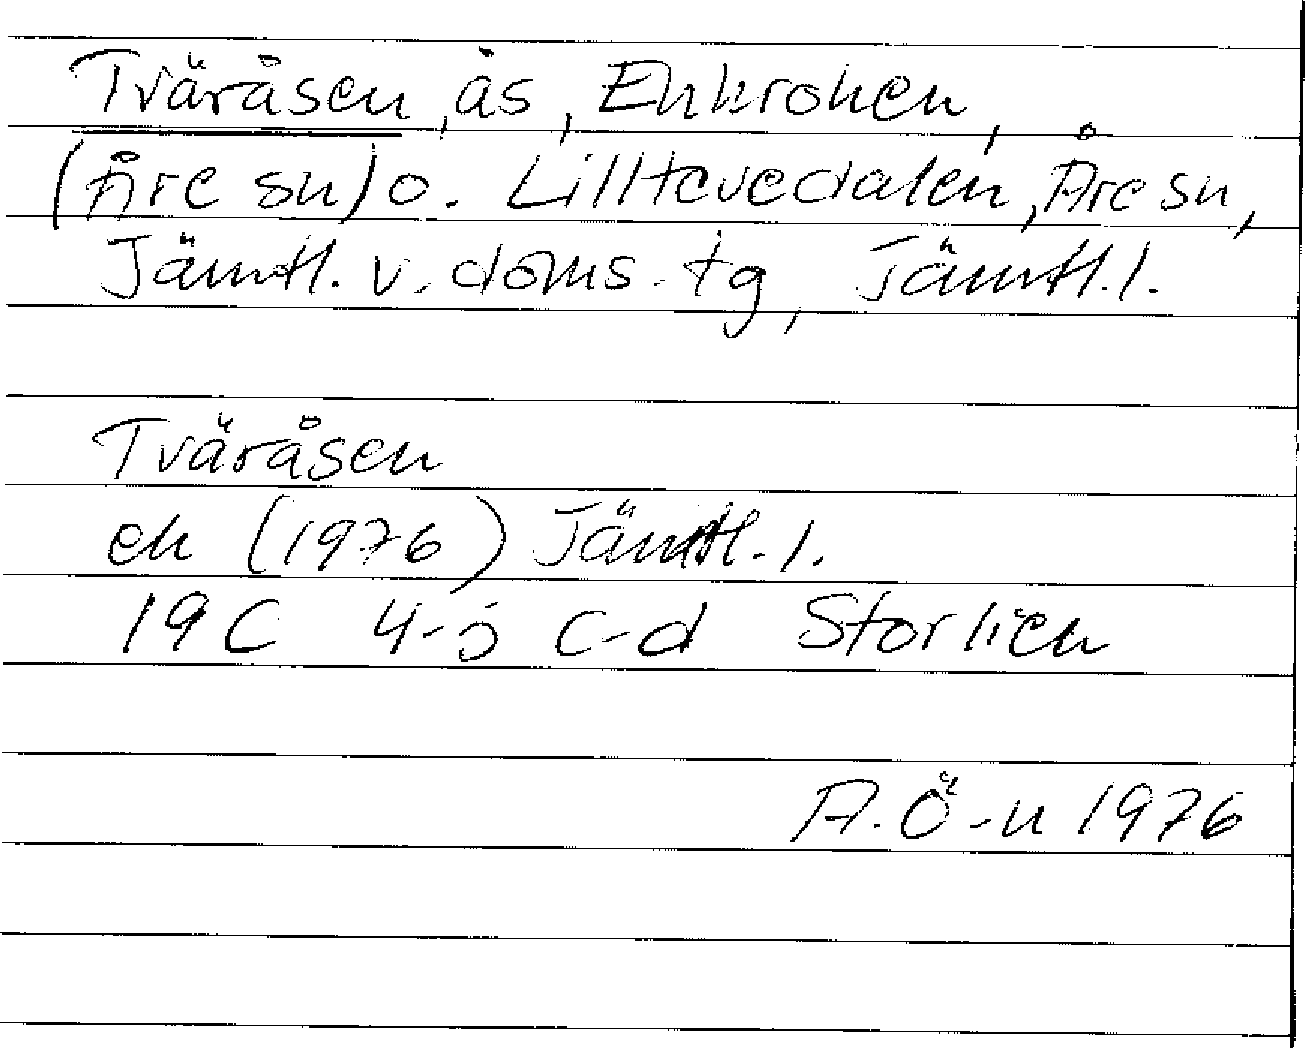 Tväråsen, ås, Enkroken,
(Åre sn) o. Lilltevedalen, Åre sn,
Jämtl. v. doms. tg, Jämtl. l.
Tväråsen
ek (1976) Jämtl. l.
19 C 4-5 c-d Storlien
A. Ö-n 1976